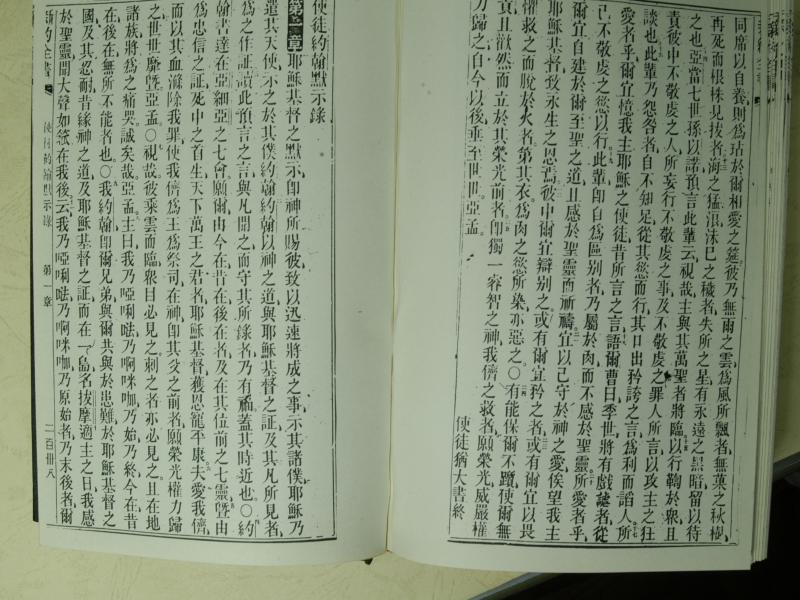 同席以自養則爲玷於爾相愛之筵彼乃無雨之雲爲風所飄者無菓之秋樹
再死而根株見拔者海之猛浪沫已之穢者失所之星有永遠之黑暗留以待
之也亞當七世孫以諾預言此輩云視哉主與其萬聖者將臨以行鞫於衆且
責彼中不敬虔之人所妄行不敬虔之事及不敬虔之罪人所言以攻主之狂
談也此輩乃怨咎者自不知足從其慾而行其口出矜誇之言爲利而諂人所
愛者乎爾宜憶我主耶穌之使徒昔所言之言語爾曹曰季世將有戲謔者從
己不敬虔之慾以行此輩卽自爲區别者乃屬於肉而不感於聖靈所愛者乎
爾宜自建於爾至聖之道且感於聖靈而祈禱宜以己守於神之愛俟望我主
耶穌基督致永生之恩焉彼中爾宜辯别之或有爾宜矜之者或有爾宜以畏
懼救之而脱於火者第其衣爲肉之慾所染亦惡之〇有能保爾不躓使爾無
玷且歡然而立於其榮光前者卽獨一睿智之神我儕之救者願榮光威嚴權
力歸之自今以後垂至世世亞孟
使徒猶大書終
使徒約翰默示錄
第一章耶穌基督之默示卽神所賜彼致以迅速將成之事示其諸僕耶穌乃
遣其天使示之於其僕約翰約翰以神之道與耶穌基督之証及其凡所見者
爲之作証讀此預言之言與凡聞之而守其所錄者乃有福蓋其時近也〇約
翰書達在亞細亞之七會願爾由今在昔在後在者及在其位前之七靈曁由
爲忠信之証死中之首生天下萬王之君者耶穌基督獲恩寵平康夫愛我儕
而以其血滌除我罪使我儕爲王爲祭司在神卽其父之前者願榮光權力歸
之世世靡曁亞孟〇視哉彼乘雲而臨衆目必見之刺之者亦必見之且在地
諸族將爲之痛哭誠矣哉亞孟主曰我乃啞唎噠乃啊咪咖乃始乃終今在昔
在後在無所不能者也〇我約翰卽爾兄弟與爾共與於患難於耶穌基督之
國及其忍耐昔緣神之道及耶穌基督之証而在一島名拔摩適主之日我感
於聖靈聞大聲如號在我後云我乃啞唎噠乃啊咪咖乃原始者乃末後者爾
新約全書 使徒約翰默示錄 第一章 二百卅八